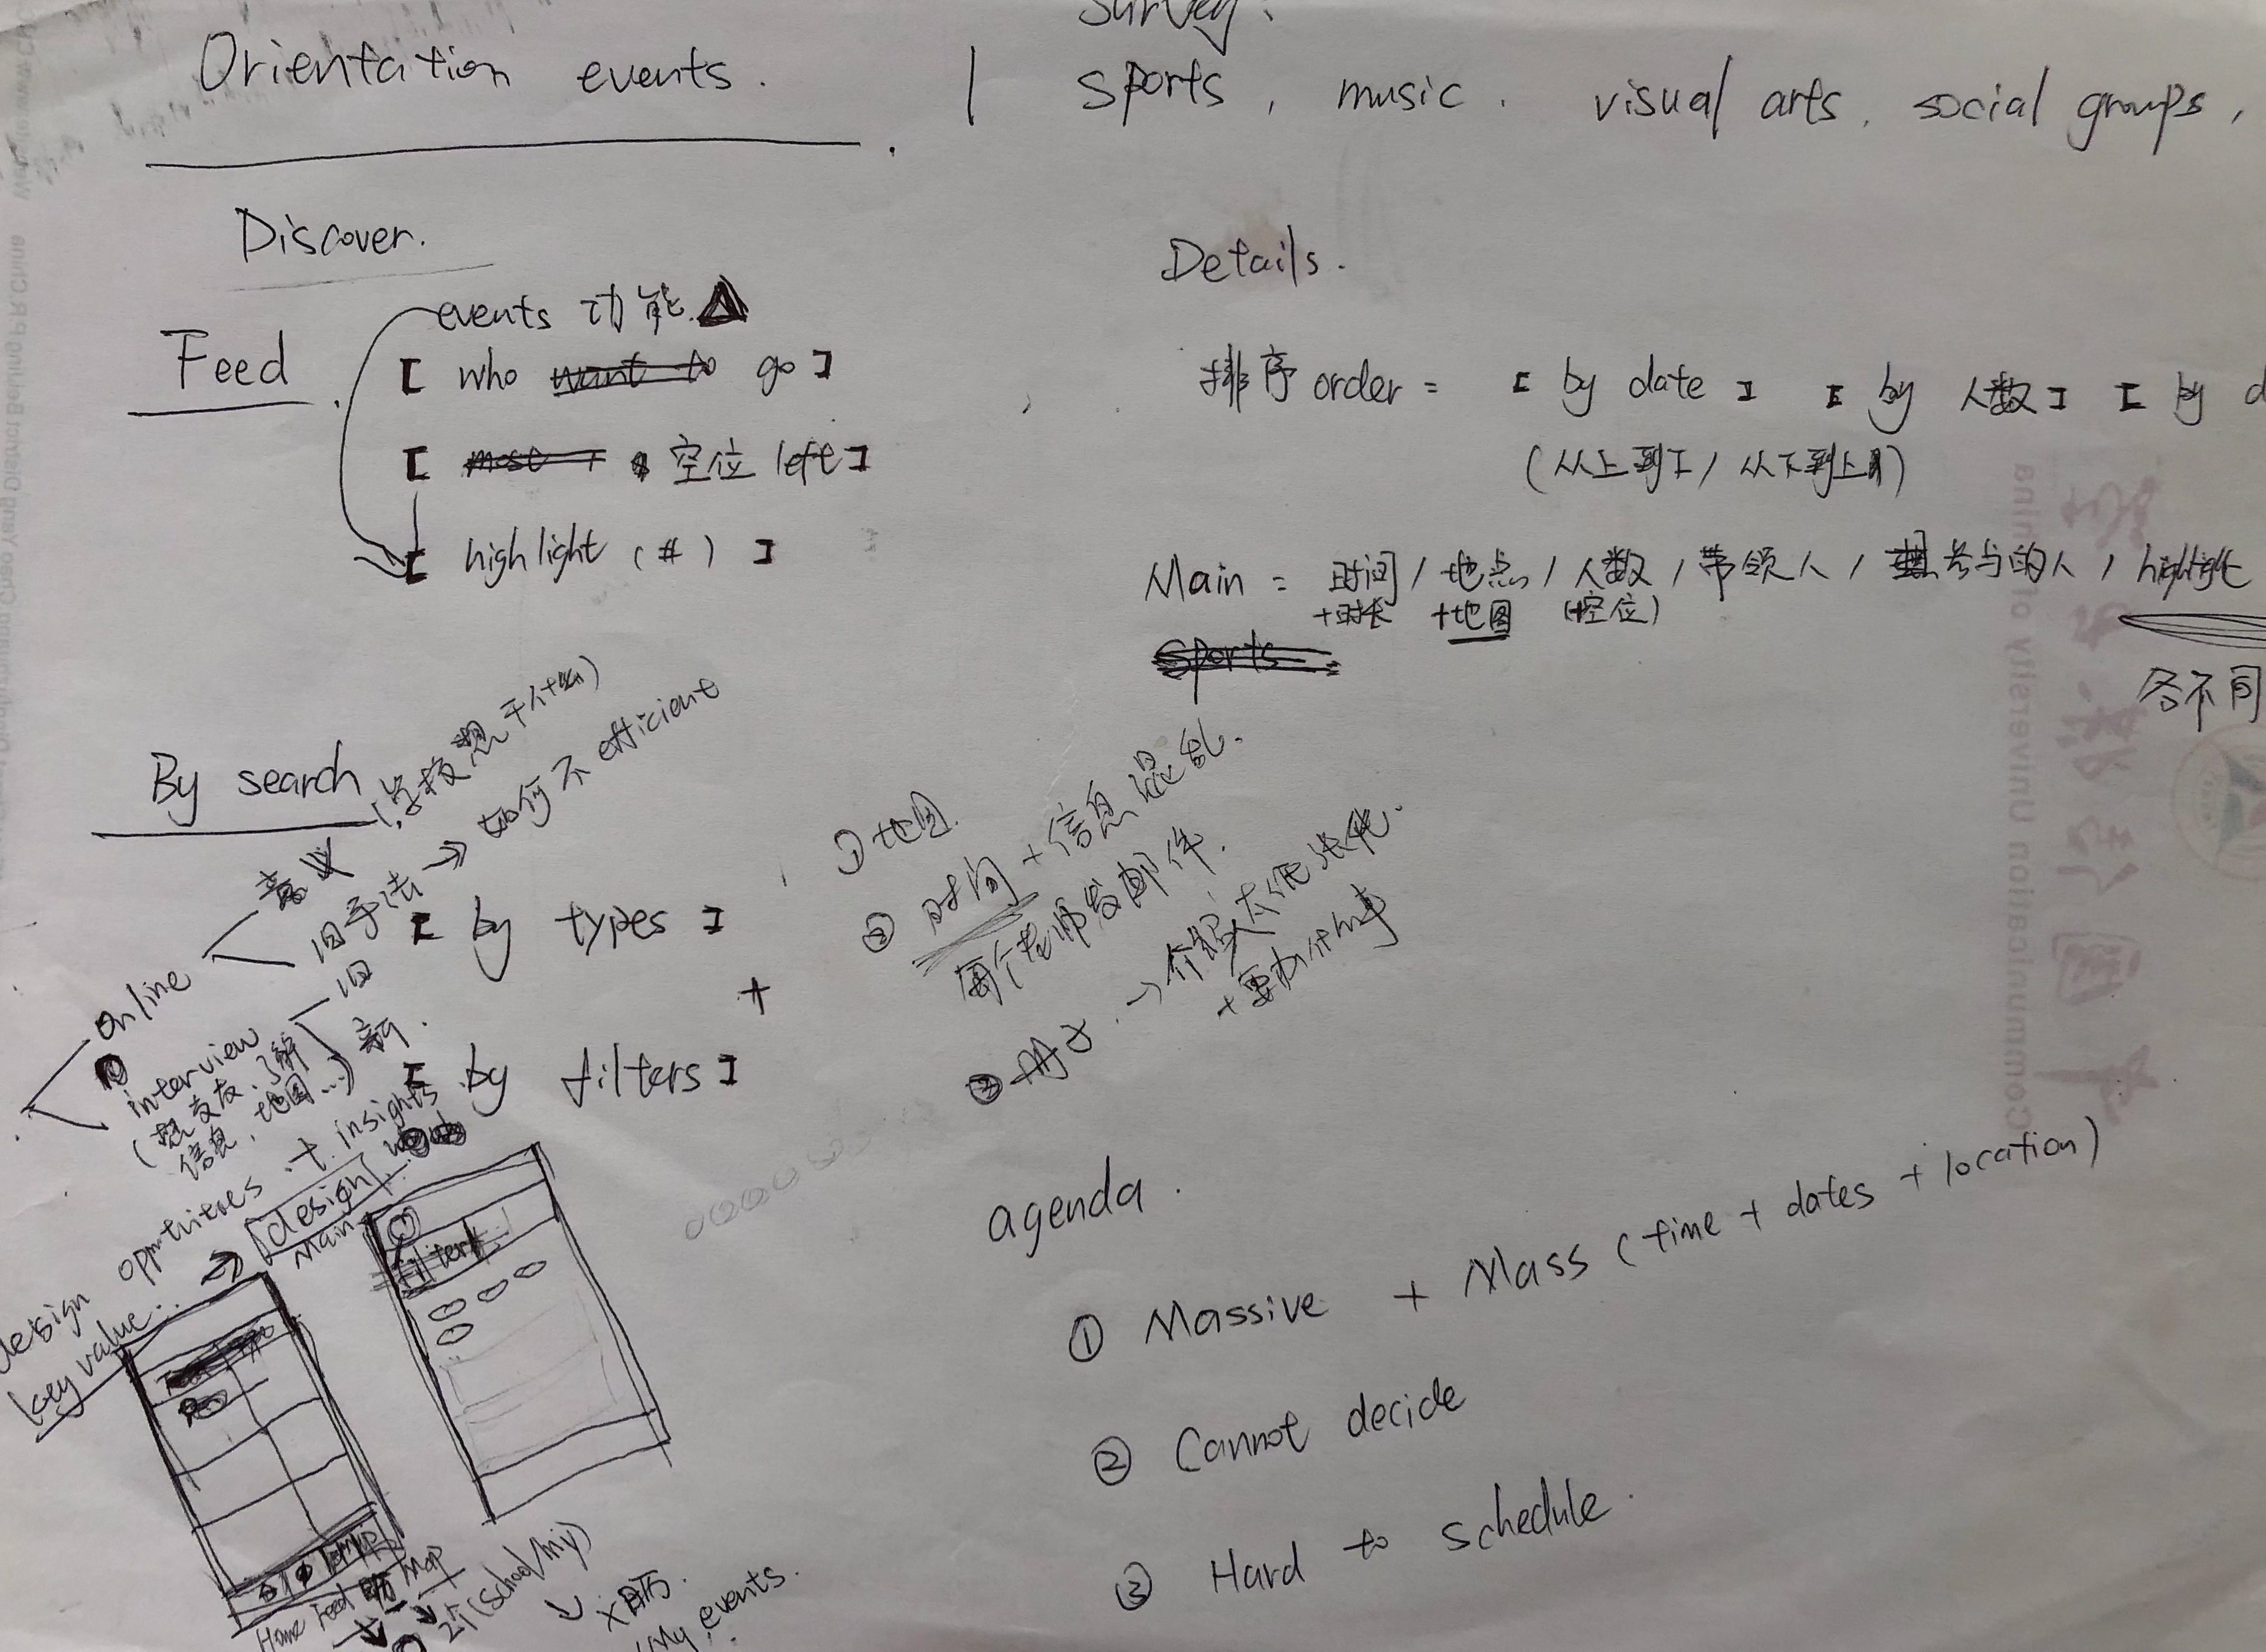 Survey:
Orientation events.
sports, music. visual arts, social groups,
Discover.
events 功能
Feed
[ who want to go ]
[ most 空位 left ]
[ highlight (#) ]
Details.
排序 order = [ by date ] [ by 人数 ] [ by d
(从上到下/从下到上)
Main = 时间 / 地点 / 人数 / 带领人 / 参与的人 / highlight
+时长 +地图 (空位)
sports
各不同
By search
(学校想干什么)
意义
旧手法 → 如何不 efficient
[ by types ]
+
[ by filters ]
Online
interview
旧
新.
(想交友, 了解
信息, 地图...)
design opportunities + insights
key value
→ design
Main
filter
Home Feed 日历 Map
2个(school/my)
↓
日历.
My events.
① 地图.
② 时间 + 信息混乱.
每个老师发邮件.
③
+ 要办什么事
agenda.
① Massive + Mass (time + dates + location)
② Cannot decide
③ Hard to schedule.
Communication University of China